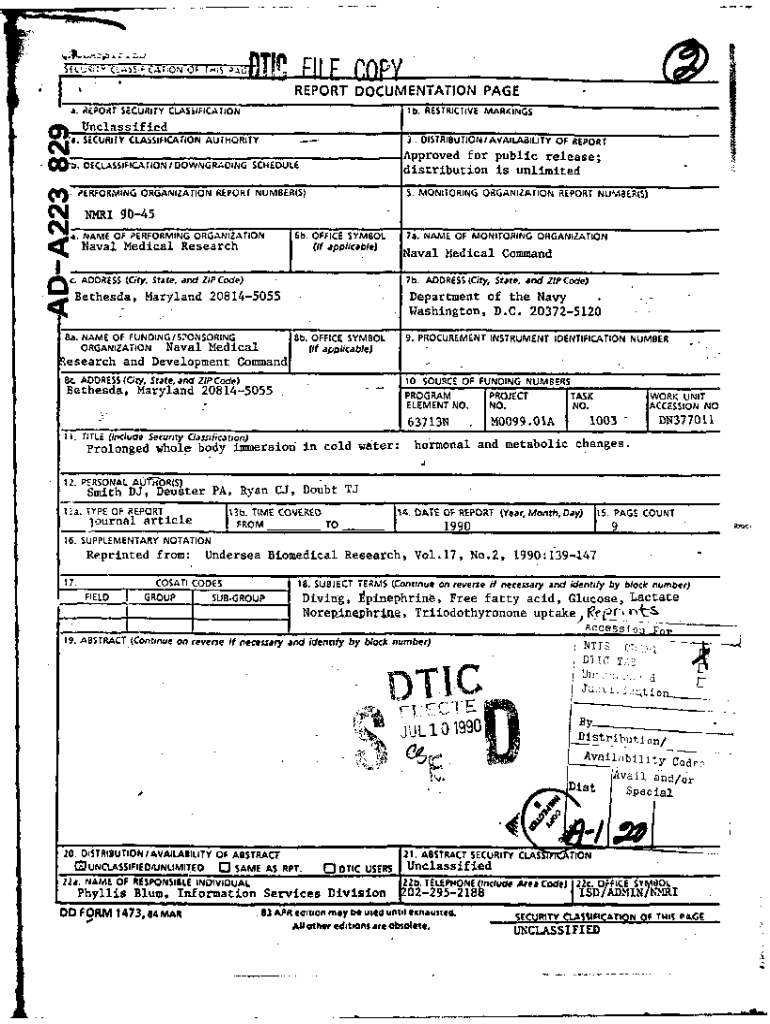 DTIC FILE COPY
2
SECURITY CLASSIFICATION OF THIS PAGE
REPORT DOCUMENTATION PAGE
AD-A223 829
a. REPORT SECURITY CLASSIFICATION
Unclassified
1b. RESTRICTIVE MARKINGS
a. SECURITY CLASSIFICATION AUTHORITY
3. DISTRIBUTION/AVAILABILITY OF REPORT
Approved for public release;
distribution is unlimited
b. DECLASSIFICATION/DOWNGRADING SCHEDULE
PERFORMING ORGANIZATION REPORT NUMBER(S)
NMRI 90-45
5. MONITORING ORGANIZATION REPORT NUMBER(S)
a. NAME OF PERFORMING ORGANIZATION
Naval Medical Research
6b. OFFICE SYMBOL
(If applicable)
7a. NAME OF MONITORING ORGANIZATION
Naval Medical Command
c. ADDRESS (City, State, and ZIP Code)
Bethesda, Maryland 20814-5055
7b. ADDRESS (City, State, and ZIP Code)
Department of the Navy
Washington, D.C. 20372-5120
8a. NAME OF FUNDING/SPONSORING
ORGANIZATION Naval Medical
Research and Development Command
8b. OFFICE SYMBOL
(If applicable)
9. PROCUREMENT INSTRUMENT IDENTIFICATION NUMBER
8c. ADDRESS (City, State, and ZIP Code)
Bethesda, Maryland 20814-5055
10. SOURCE OF FUNDING NUMBERS
PROGRAM
ELEMENT NO.
63713N
PROJECT
NO.
M0099.01A
TASK
NO.
1003
WORK UNIT
ACCESSION NO
DN377011
11. TITLE (Include Security Classification)
Prolonged whole body immersion in cold water: hormonal and metabolic changes.
12. PERSONAL AUTHOR(S)
Smith DJ, Deuster PA, Ryan CJ, Doubt TJ
13a. TYPE OF REPORT
journal article
13b. TIME COVERED
FROM TO
14. DATE OF REPORT (Year, Month, Day)
1990
15. PAGE COUNT
9
16. SUPPLEMENTARY NOTATION
Reprinted from: Undersea Biomedical Research, Vol.17, No.2, 1990:139-147
17. COSATI CODES
FIELD GROUP SUB-GROUP
18. SUBJECT TERMS (Continue on reverse if necessary and identify by block number)
Diving, Epinephrine, Free fatty acid, Glucose, Lactate
Norepinephrine, Triiodothyronone uptake, Reprints
19. ABSTRACT (Continue on reverse if necessary and identify by block number)
Accession For
NTIS
DTIC TAB
Justification
By
Distribution/
Availability Codes
Avail and/or
Dist Special
A-1 20
DTIC
ELECTE
JUL 10 1990
S D
COPY
INSPECTED
20. DISTRIBUTION/AVAILABILITY OF ABSTRACT
UNCLASSIFIED/UNLIMITED SAME AS RPT. DTIC USERS
21. ABSTRACT SECURITY CLASSIFICATION
Unclassified
22a. NAME OF RESPONSIBLE INDIVIDUAL
Phyllis Blum, Information Services Division
22b. TELEPHONE (Include Area Code)
202-295-2188
22c. OFFICE SYMBOL
ISD/ADMIN/NMRI
DD FORM 1473, 84 MAR
83 APR edition may be used until exhausted.
All other editions are obsolete.
SECURITY CLASSIFICATION OF THIS PAGE
UNCLASSIFIED